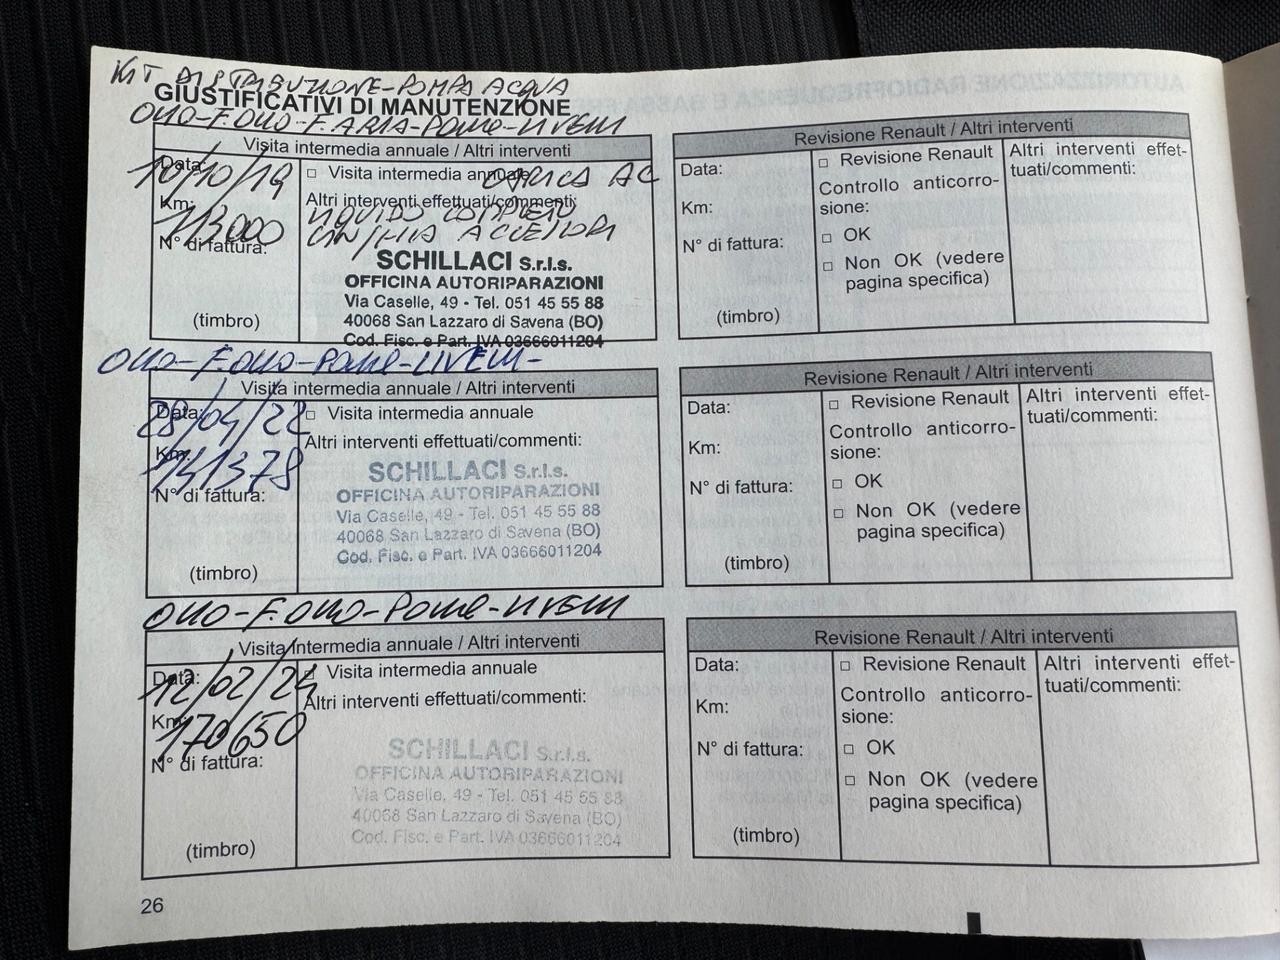 KIT DISTRIBUZIONE-POMPA ACQUA
GIUSTIFICATIVI DI MANUTENZIONE
OLIO-F.OLIO-F.ARIA-POLLINE-LIVELLI
Visita intermedia annuale / Altri interventi
Data: 10/10/19
□ Visita intermedia annuale CARICA AC
Km: 113000
Altri interventi effettuati/commenti:
LIQUIDO COMPLETO
CINGHIA ACCESSORI
N° di fattura:
SCHILLACI S.r.l.s.
OFFICINA AUTORIPARAZIONI
Via Caselle, 49 - Tel. 051 45 55 88
40068 San Lazzaro di Savena (BO)
Cod. Fisc. e Part. IVA 03666011204
(timbro)
Revisione Renault / Altri interventi
Data:
Km:
N° di fattura:
(timbro)
□ Revisione Renault
Controllo anticorro-
sione:
□ OK
□ Non OK (vedere
pagina specifica)
Altri interventi effet-
tuati/commenti:
OLIO-F.OLIO-POLLINE-LIVELLI-
Visita intermedia annuale / Altri interventi
Data: 28/04/22
□ Visita intermedia annuale
Km: 141378
Altri interventi effettuati/commenti:
N° di fattura:
SCHILLACI S.r.l.s.
OFFICINA AUTORIPARAZIONI
Via Caselle, 49 - Tel. 051 45 55 88
40068 San Lazzaro di Savena (BO)
Cod. Fisc. e Part. IVA 03666011204
(timbro)
Revisione Renault / Altri interventi
Data:
Km:
N° di fattura:
(timbro)
□ Revisione Renault
Controllo anticorro-
sione:
□ OK
□ Non OK (vedere
pagina specifica)
Altri interventi effet-
tuati/commenti:
OLIO-F.OLIO-POLLINE-LIVELLI
Visita intermedia annuale / Altri interventi
Data: 12/02/24
□ Visita intermedia annuale
Km: 170650
Altri interventi effettuati/commenti:
N° di fattura:
SCHILLACI S.r.l.s.
OFFICINA AUTORIPARAZIONI
Via Caselle, 49 - Tel. 051 45 55 88
40068 San Lazzaro di Savena (BO)
Cod. Fisc. e Part. IVA 03666011204
(timbro)
Revisione Renault / Altri interventi
Data:
Km:
N° di fattura:
(timbro)
□ Revisione Renault
Controllo anticorro-
sione:
□ OK
□ Non OK (vedere
pagina specifica)
Altri interventi effet-
tuati/commenti:
26